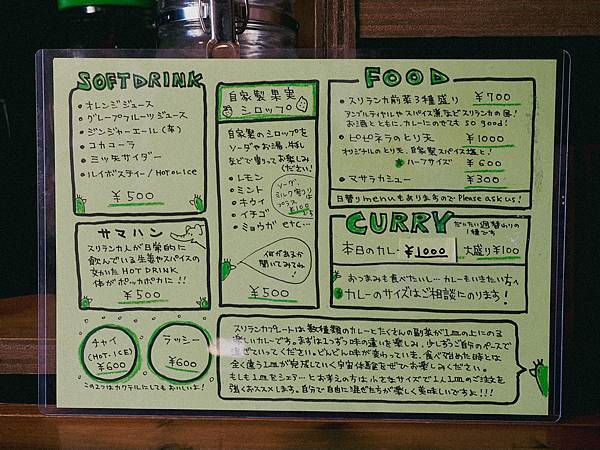 SOFT DRINK
・オレンジジュース
・グレープフルーツジュース
・ジンジャーエール(辛)
・コカコーラ
・三ッ矢サイダー
・ルイボスティー/HOT or ICE
¥500
サマハン
スリランカ人が日常的に
飲んでいる生姜やスパイスの
効いたHOT DRINK
体がポッカポカに!!
¥500
チャイ
(HOT・ICE)
¥600
ラッシー
¥600
この2つはカクテルにしてもおいしいよ!
自家製果実
シロップ
自家製のシロップを
ソーダやお湯、牛乳
などで割ってお楽しみ
ください!
・レモン
・ミント
・キウイ
・イチゴ
・ミョウガ etc...
ソーダ、
ミルク割りは
プラス
何があるか
聞いてみてね!
¥500
FOOD
・スリランカ前菜3種盛り ¥700
お酒とともに、カレーにのせても so good!
・ピピネラのとり天 ¥1000
オリジナルのとり天、自家製スパイス塩と!
ハーフサイズ ¥600
・マサラカシュー ¥300
日替りmenuもありますのでPlease ask us!
CURRY
だいたい週替わりの
1種です
本日のカレー ¥1000 大盛り¥100
おつまみも食べたいし…カレーもいきたい方へ
カレーのサイズはご相談にのります!
スリランカプレートは数種類のカレーとたくさんの副菜が1皿の上にのる
カレーです。まずは1つずつ味の違いを楽しみ、少しずつご自分のペースで
混ぜていってください。どんどん味が変わっていき、食べ始めた時とは
全く違う1皿が完成していく宇宙体験をぜひお楽しみください。
もしも1皿をシェア…とお考えの方は小さなサイズで1人1皿のご注文を
強くおススメします。自分で自由に混ぜた方が楽しく美味しいですよ!!!